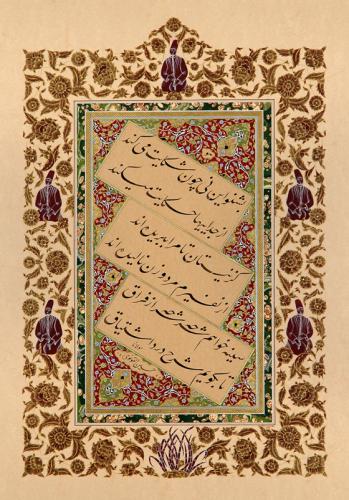 بشنو این نی چون شکایت می کند
از جداییها حکایت میکند
کز نیستان تا مرا ببریده اند
از نفیرم مرد و زن نالیده اند
سینه خواهم شرحه شرحه از فراق
تا بگویم شرح درد اشتیاق